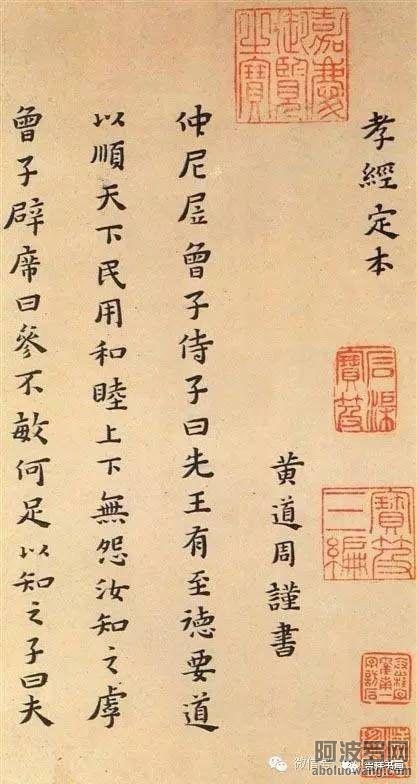 孝經定本
黄道周謹書
仲尼曾子侍子曰先王有至徳要道
以順天下民用和睦上下無怨汝知之虖
曾子辟席曰參不敏何足以知之子曰夫
嘉慶
御覽
之寶
石渠
寶笈
寶笈
三編
微信号
阿波罗网
aboluowang.com